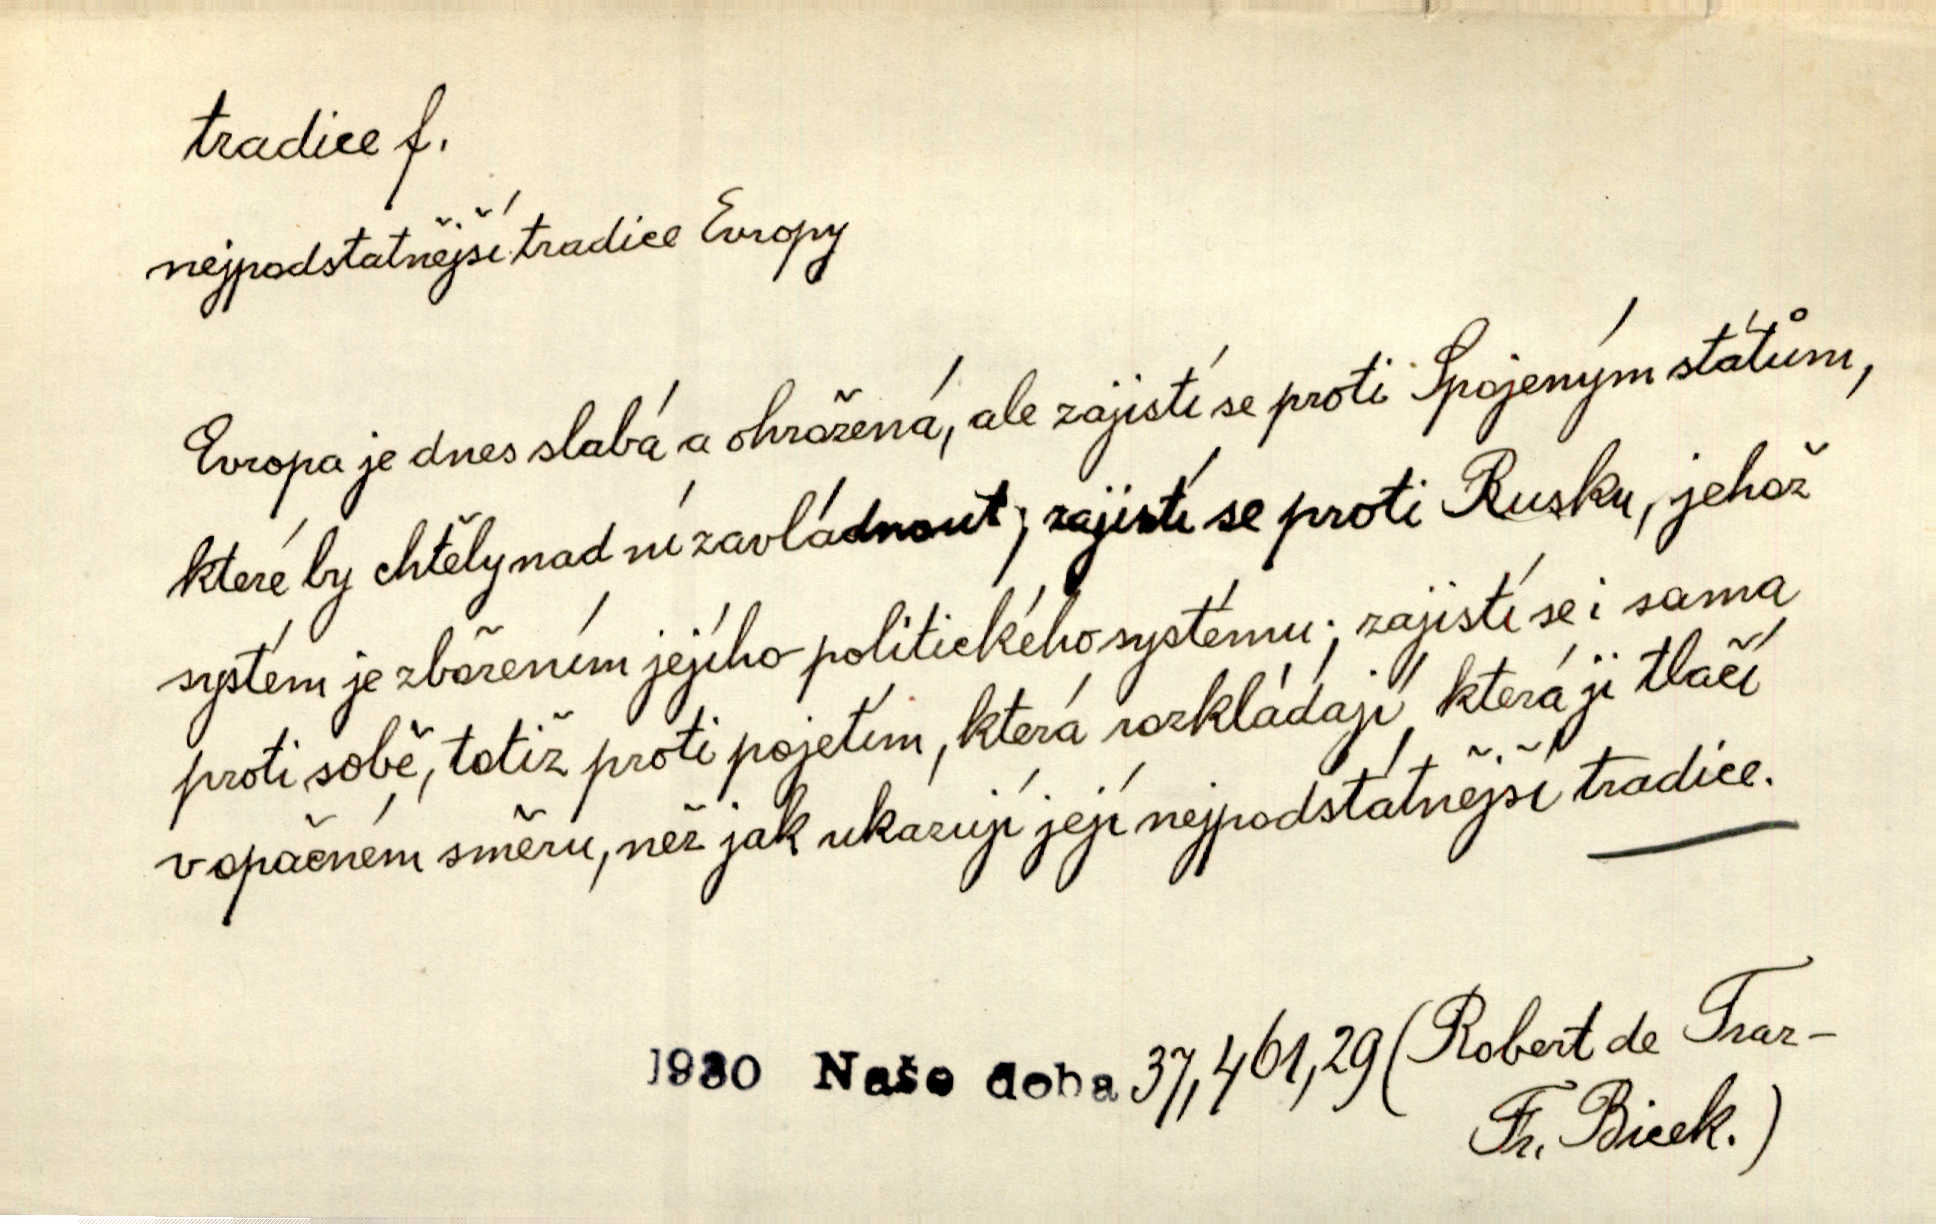 tradice f.
nejpodstatnější tradice Evropy
Evropa je dnes slabá a ohrožená, ale zajistí se proti Spojeným státům,
které by chtěly nad ní zavládnout; zajistí se proti Rusku, jehož
systém je zbořením jejího politického systému; zajistí se i sama
proti sobě, totiž proti pojetím, která rozkládají, která ji tlačí
v opačném směru, než jak ukazují její nejpodstatnější tradice.
1930 Naše doba 37,461,29 (Robert de Traz-
Fr. Bicek.)